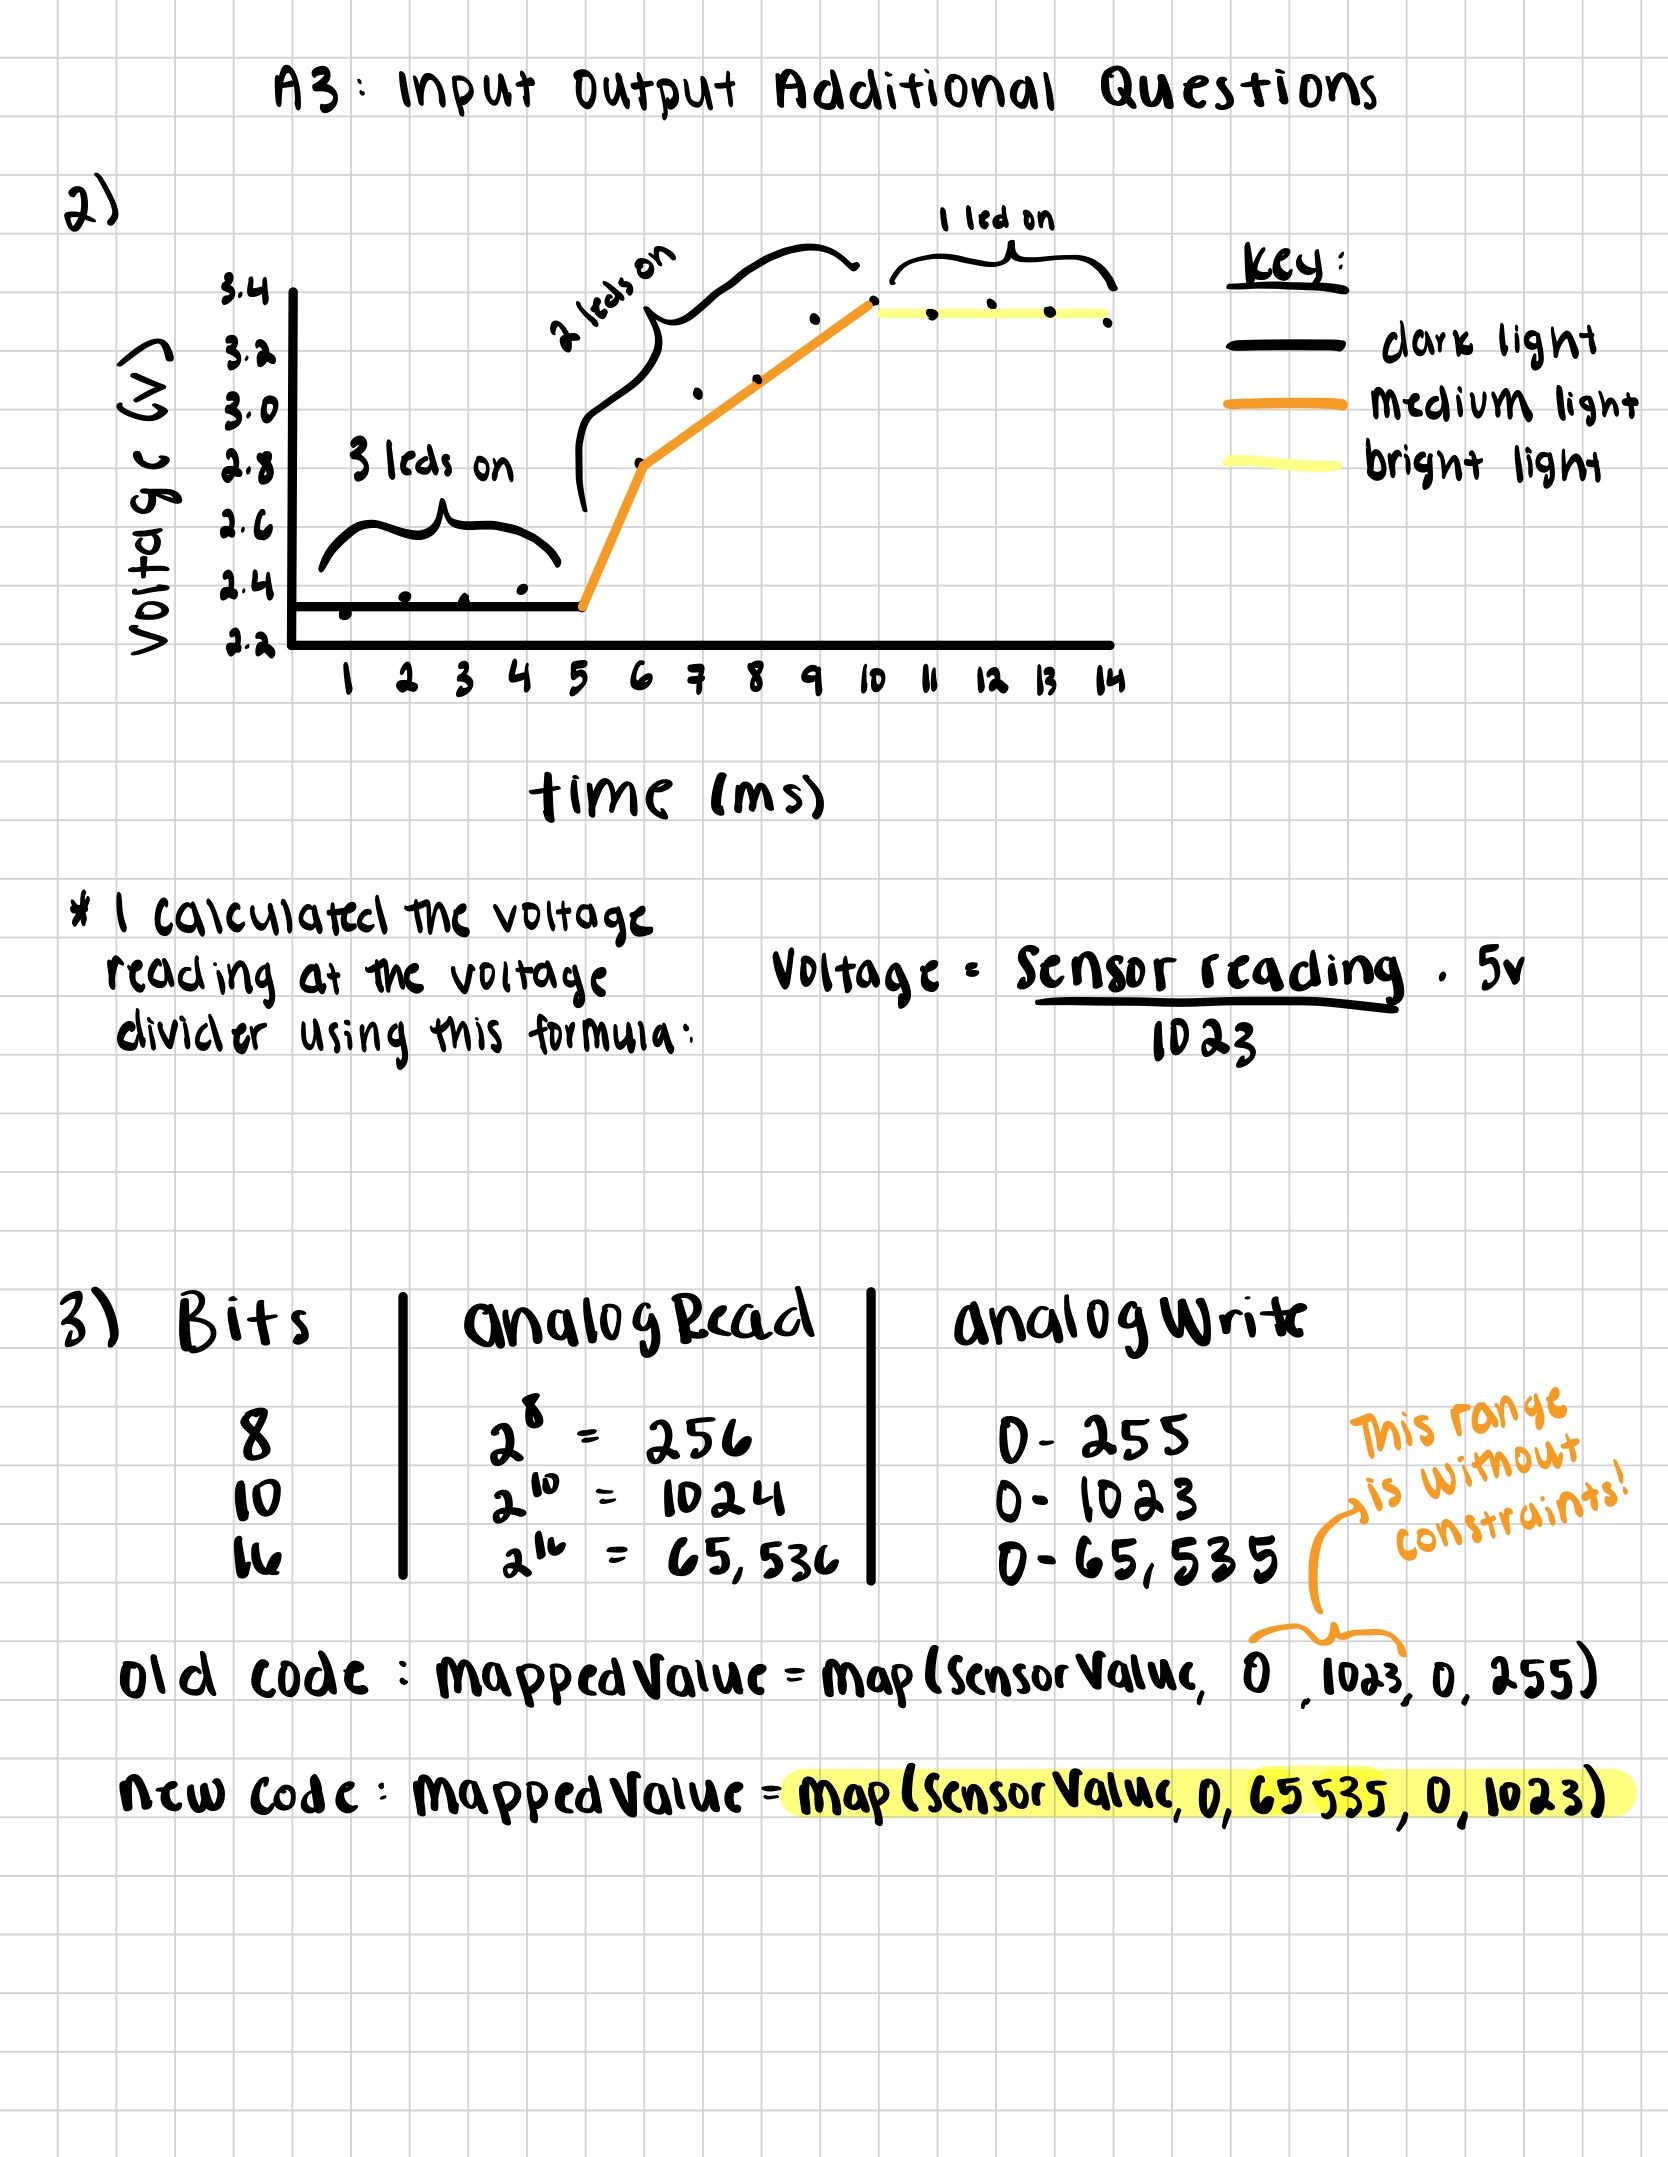 A3: Input Output Additional Questions
2)
1 led on
2 leds on
key:
3.4
3.2
3.0
2.8
2.6
2.4
2.2
Voltage (V)
3 leds on
dark light
medium light
bright light
1 2 3 4 5 6 7 8 9 10 11 12 13 14
time (ms)
* I calculated the voltage
reading at the voltage
divider using this formula:
Voltage = sensor reading . 5v
1023
3) Bits analogRead analogWrite
8 2^8 = 256 0 - 255
10 2^10 = 1024 0 - 1023
16 2^16 = 65,536 0 - 65,535
This range
is without
constraints!
old code : mappedValue = map(sensorValue, 0, 1023, 0, 255)
new code : mappedValue = map(sensorValue, 0, 65535, 0, 1023)